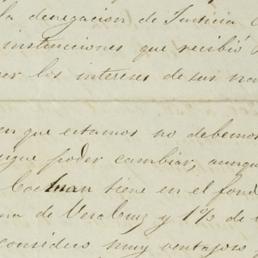 la denegacion de Justicia
instrucciones que recibió
los intereses de sus
en que estamos no debemos
sigue poder cambiar, aunque
tiene en el fond
de Vera Cruz y 1% de
considero muy ventajoso